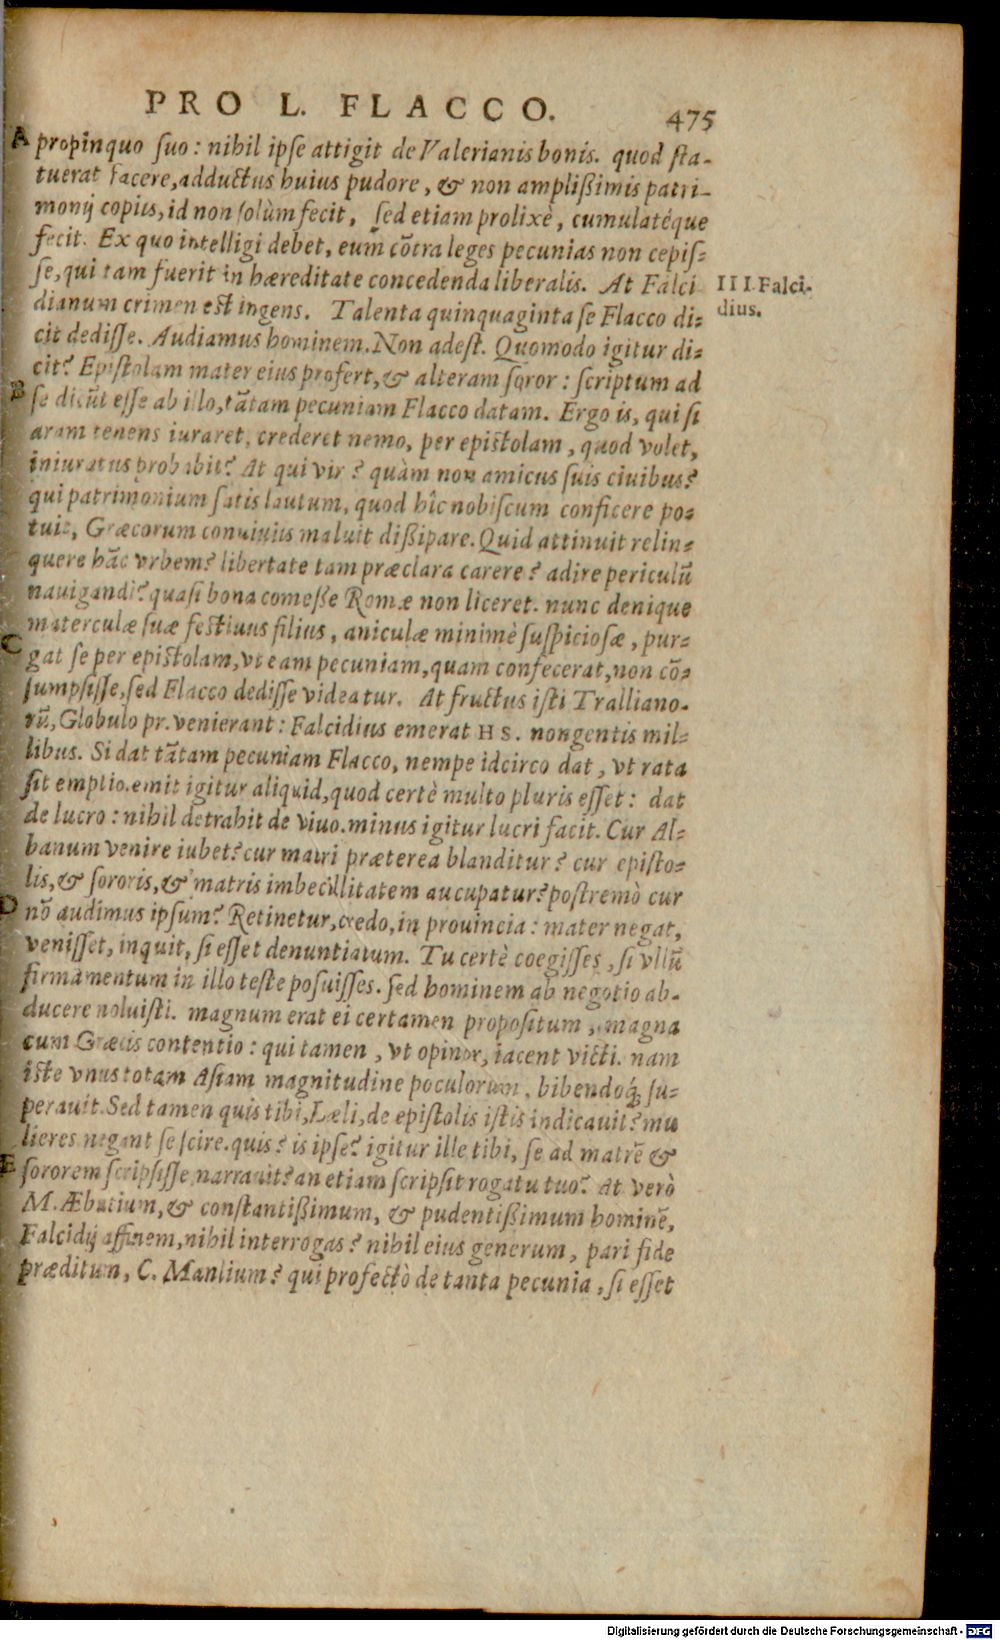 PRO L. FLACCO. 475
A propinquo suo: nihil ipse attigit de Valerianis bonis. quod sta-
tuerat facere, adductus huius pudore, & non amplißimis patri-
monij copiis, id non solùm fecit, sed etiam prolixè, cumulatéque
fecit. Ex quo intelligi debet, eum cōtra leges pecunias non cepis=
se, qui tam fuerit in hæreditate concedenda liberalis. At Falci
III. Falci-
dius.
dianum crimen est ingens. Talenta quinquaginta se Flacco di=
cit dedisse. Audiamus hominem. Non adest. Quomodo igitur di=
cit? Epistolam mater eius profert, & alteram soror: scriptum ad
B se dicūt esse ab illo, tātam pecuniam Flacco datam. Ergo is, qui si
aram tenens iuraret, crederet nemo, per epistolam, quod volet,
iniuratus probabit? At qui vir? quàm non amicus suis ciuibus?
qui patrimonium satis lautum, quod hîc nobiscum conficere po=
tuit, Græcorum conuiuiis maluit dißipare. Quid attinuit relin=
quere hāc vrbem? libertate tam præclara carere? adire periculū
nauigandi? quasi bona comeße Romæ non liceret. nunc denique
materculæ suæ festiuus filius, aniculæ minimè suspiciosæ, pur=
C gat se per epistolam, vt eam pecuniam, quam confecerat, non cō=
sumpsisse, sed Flacco dedisse videatur. At fructus isti Tralliano-
rū, Globulo pr. venierant: Falcidius emerat HS. nongentis mil=
libus. Si dat tātam pecuniam Flacco, nempe idcirco dat, vt rata
sit emptio. emit igitur aliquid, quod certè multo pluris esset: dat
de lucro: nihil detrahit de viuo. minus igitur lucri facit. Cur Al=
banum venire iubet? cur matri præterea blanditur? cur episto=
lis, & sororis, & matris imbecillitatem aucupatur? postremò cur
D nō audimus ipsum? Retinetur, credo, in prouincia: mater negat,
venisset, inquit, si esset denuntiatum. Tu certè coegisses, si vllū
firmamentum in illo teste posuisses. sed hominem ab negotio ab-
ducere noluisti. magnum erat ei certamen propositum, magna
cum Græcis contentio: qui tamen, vt opinor, iacent victi. nam
iste vnus totam Asiam magnitudine poculorum, bibendoq́; su-
perauit. Sed tamen quis tibi, Læli, de epistolis istis indicauit? mu
lieres negant se scire. quis? is ipse? igitur ille tibi, se ad matrē &
E sororem scripsisse narrauit? an etiam scripsit rogatu tuo? At verò
M. Æbutium, & constantißimum, & pudentißimum hominē,
Falcidij affinem, nihil interrogas? nihil eius generum, pari fide
præditum, C. Manlium? qui profectò de tanta pecunia, si esset
Digitalisierung gefördert durch die Deutsche Forschungsgemeinschaft - DFG